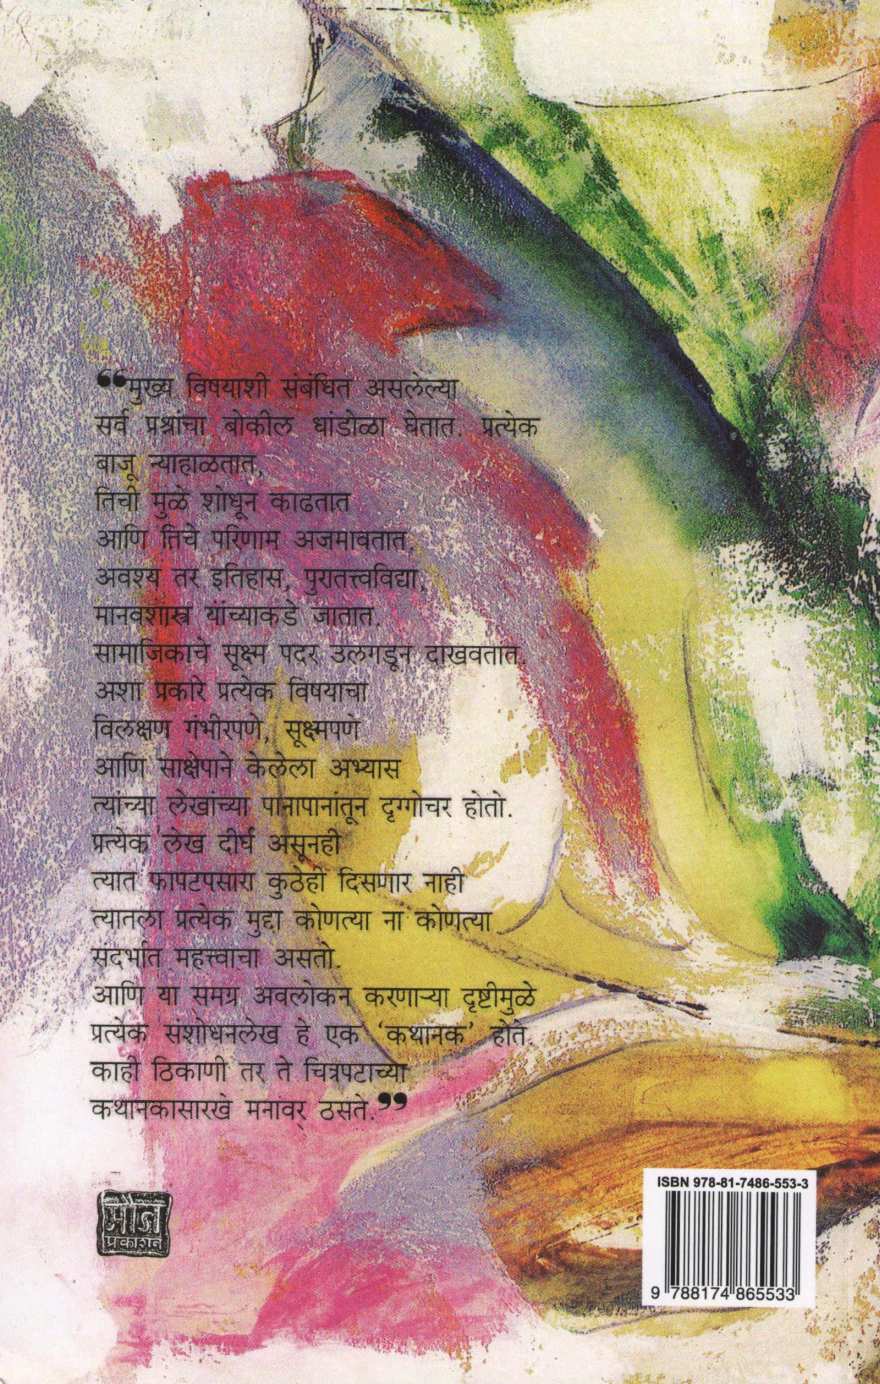 “मुख्य विषयाशी संबंधित असलेल्या
सर्व प्रश्नांचा बोकील धांडोळा घेतात. प्रत्येक
बाजू न्याहाळतात,
तिची मुळे शोधून काढतात
आणि तिचे परिणाम अजमावतात.
अवश्य तर इतिहास, पुरातत्त्वविद्या,
मानवशास्त्र यांच्याकडे जातात.
सामाजिकाचे सूक्ष्म पदर उलगडून दाखवतात.
अशा प्रकारे प्रत्येक विषयाचा
विलक्षण गंभीरपणे, सूक्ष्मपणे
आणि साक्षेपाने केलेला अभ्यास
त्यांच्या लेखांच्या पानापानांतून दृग्गोचर होतो.
प्रत्येक लेख दीर्घ असूनही
त्यात फापटपसारा कुठेही दिसणार नाही
त्यातला प्रत्येक मुद्दा कोणत्या ना कोणत्या
संदर्भात महत्त्वाचा असतो.
आणि या समग्र अवलोकन करणाऱ्या दृष्टीमुळे
प्रत्येक संशोधनलेख हे एक ‘कथानक’ होते.
काही ठिकाणी तर ते चित्रपटाच्या
कथानकासारखे मनांवर ठसते.”
मौज
प्रकाशन
ISBN 978-81-7486-553-3
9 788174 865533